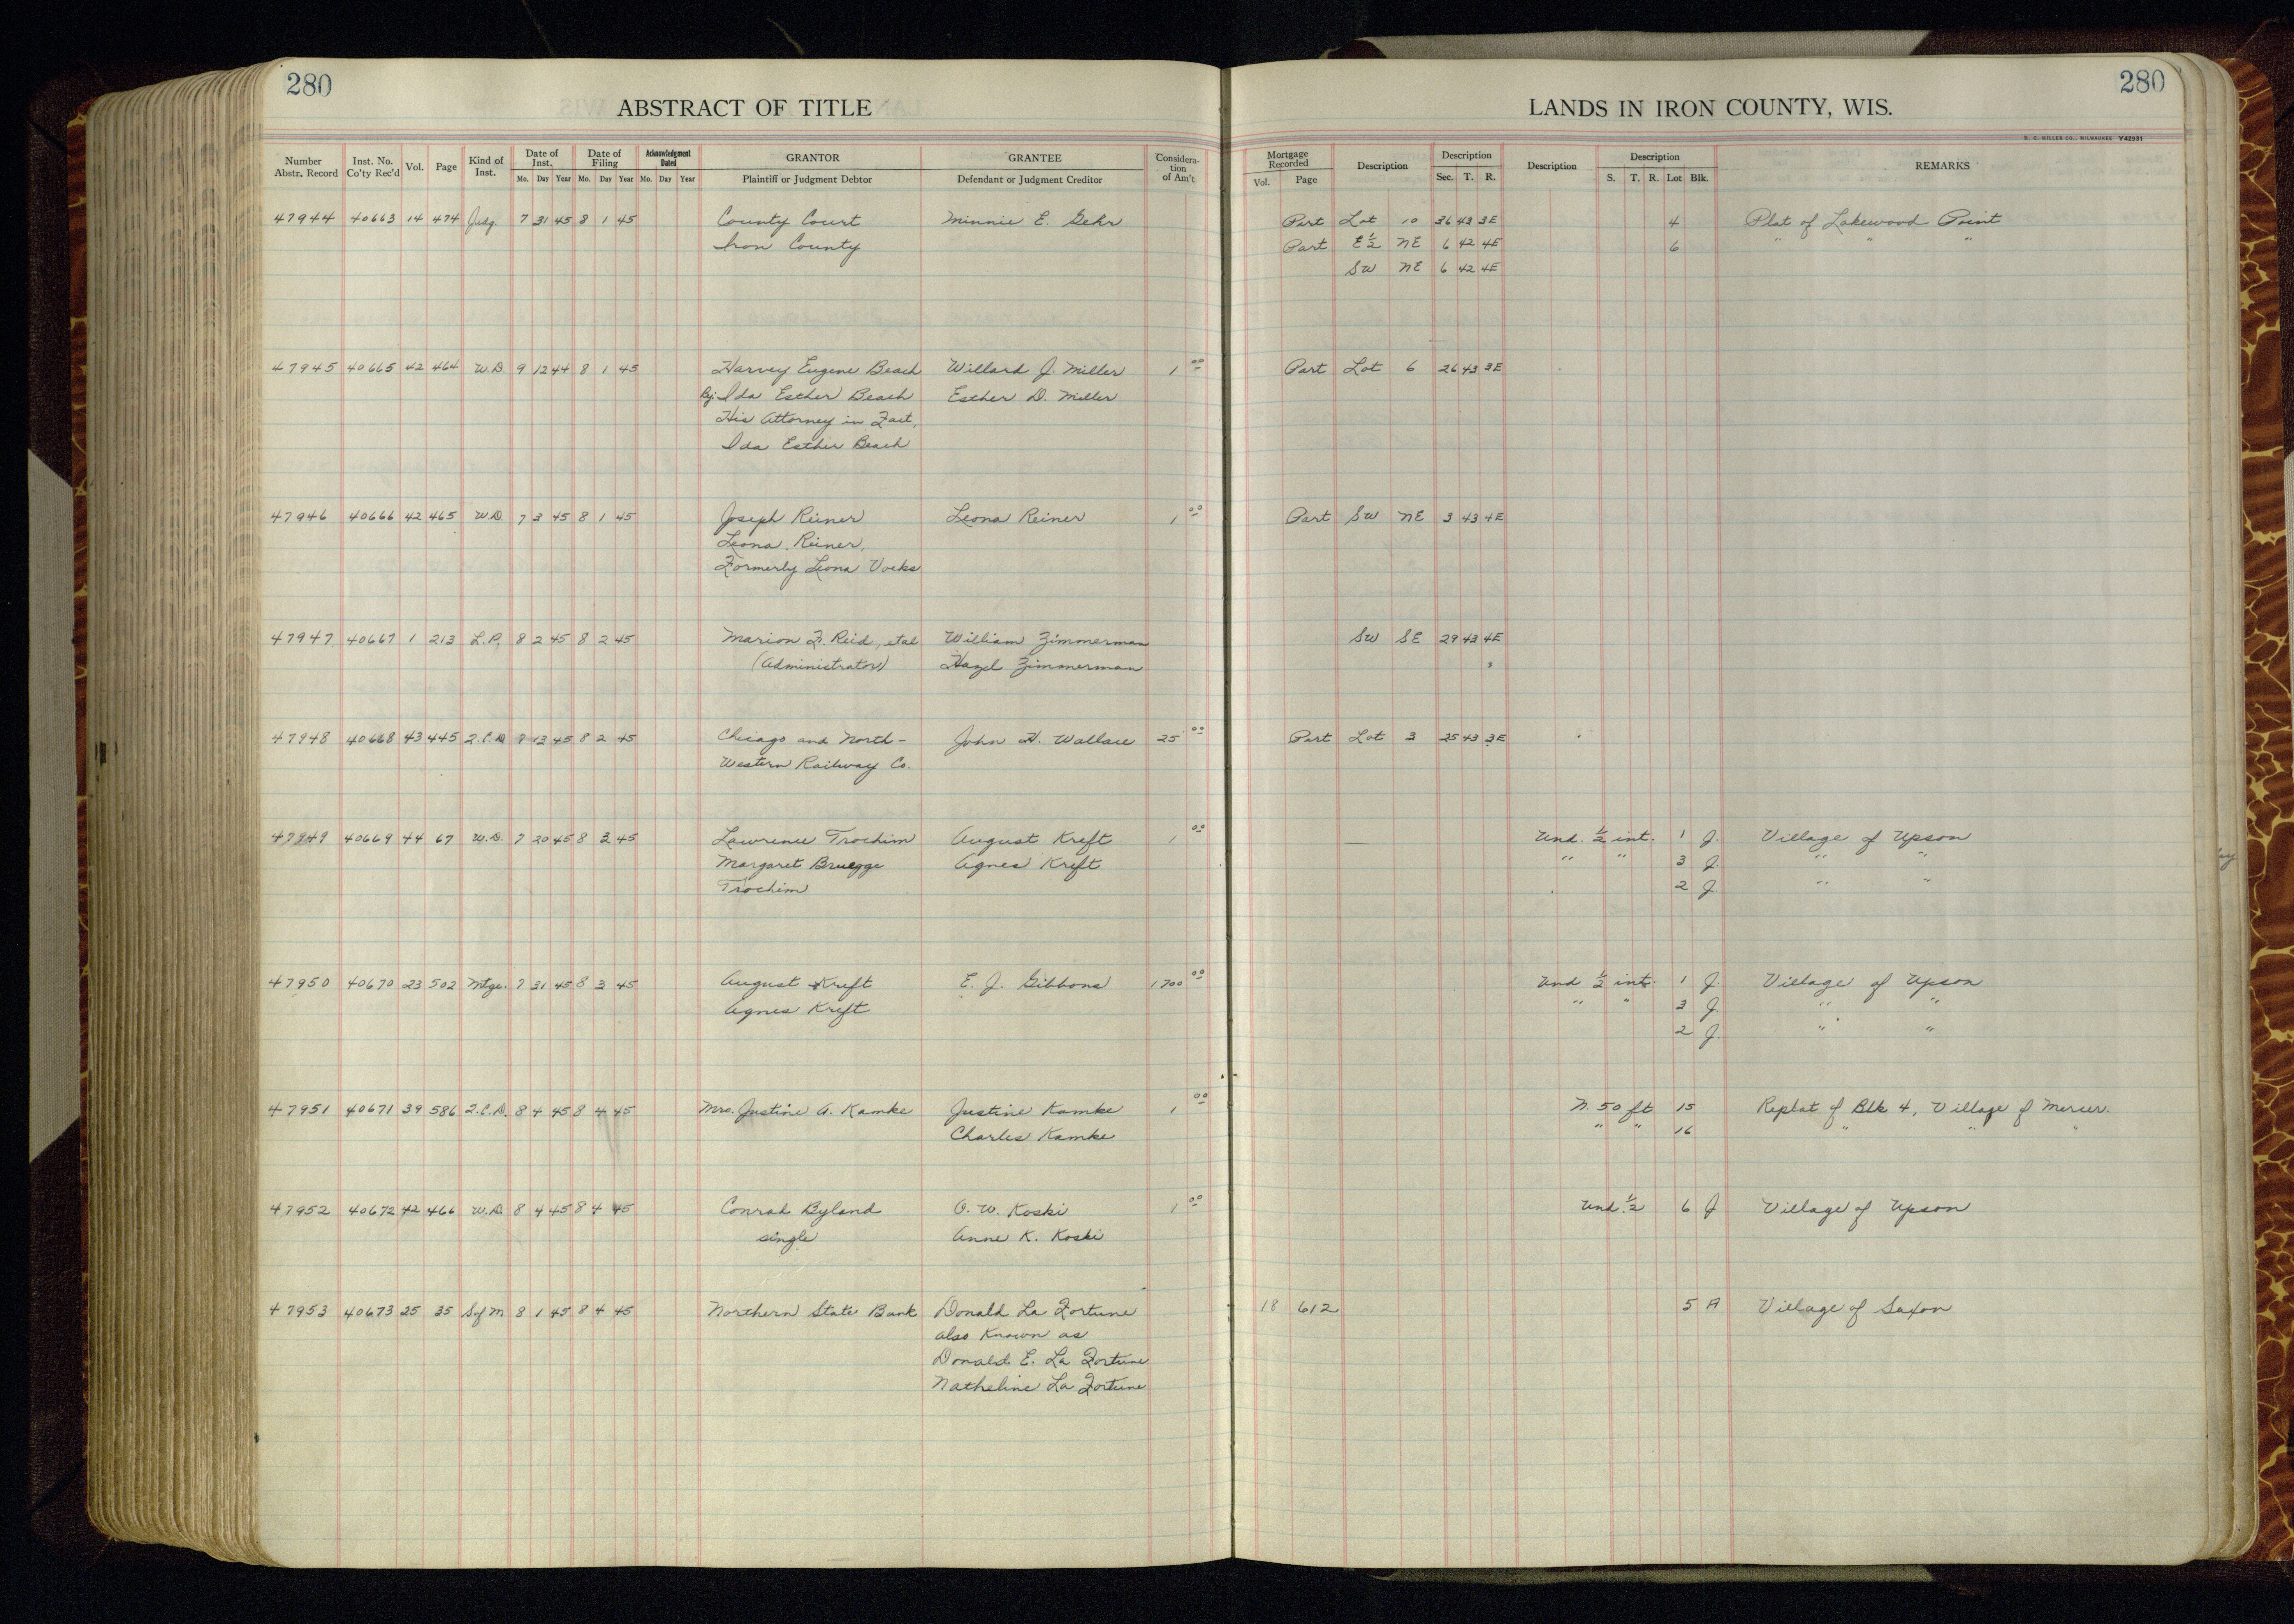 280
280
ABSTRACT OF TITLE
LANDS IN IRON COUNTY, WIS.
H. C. MILLER CO., MILWAUKEE Y42931
Number Abstr. Record Inst. No. Co'ty Rec'd Vol. Page Kind of Inst. Date of Inst. Mo. Day Year Date of Filing Mo. Day Year Acknowledgment Dated Mo. Day Year GRANTOR Plaintiff or Judgment Debtor GRANTEE Defendant or Judgment Creditor Considera-tion of Am't Mortgage Recorded Vol. Page Description Description Sec. T. R. Description Description S. T. R. Lot Blk. REMARKS
47944 40663 14 474 Judg. 7 31 45 8 1 45 County Court Minnie E. Gehr Part Lot 10 36 43 3E 4 Plat of Lakewood Point
Iron County Part E½ NE 6 42 4E 6 " " "
SW NE 6 42 4E
47945 40665 42 464 W.D. 9 12 44 8 1 45 Harvey Eugene Beach Willard J. Miller 1 00 Part Lot 6 26 43 3E
By Ida Esther Beach Esther D. Miller
His Attorney in Fact,
Ida Esther Beach
47946 40666 42 465 W.D. 7 3 45 8 1 45 Joseph Reiner Leona Reiner 1 00 Part SW NE 3 43 4E
Leona Reiner,
Formerly Leona Voeks
47947 40667 1 213 L.P. 8 2 45 8 2 45 Marion F. Reid, et al William Zimmerman SW SE 29 43 4E
(Administrator) Hazel Zimmerman
47948 40668 43 445 Q.C.D. 13 45 8 2 45 Chicago and North- John H. Wallace 25 00 Part Lot 3 25 43 3E
Western Railway Co.
47949 40669 44 67 W.D. 7 20 45 8 3 45 Lawrence Trochim August Kreft 1 00 Und. ½ int. 1 J. Village of Upson
Margaret Bruegge Agnes Kreft " " 3 J. " "
Trochim 2 J. " "
47950 40670 23 502 Mtge. 7 31 45 8 3 45 August Kreft E. J. Gibbons 1700 00 Und ½ int. 1 J. Village of Upson
Agnes Kreft " " 3 J. " "
2 J. " "
47951 40671 39 586 Q.C.D. 8 4 45 8 4 45 Mrs. Justine A. Kamke Justine Kamke 1 00 N. 50 ft 15 Replat of Blk 4, Village of Mercer.
Charles Kamke " " 16 " " "
47952 40672 42 466 W.D. 8 4 45 8 4 45 Conrad Byland O. W. Koski 1 00 Und. ½ 6 J Village of Upson
single Anne K. Koski
47953 40673 25 35 S of M 8 1 45 8 4 45 Northern State Bank Donald La Fortune 18 612 5 A Village of Saxon
also Known as
Donald E. La Fortune
Natheline La Fortune